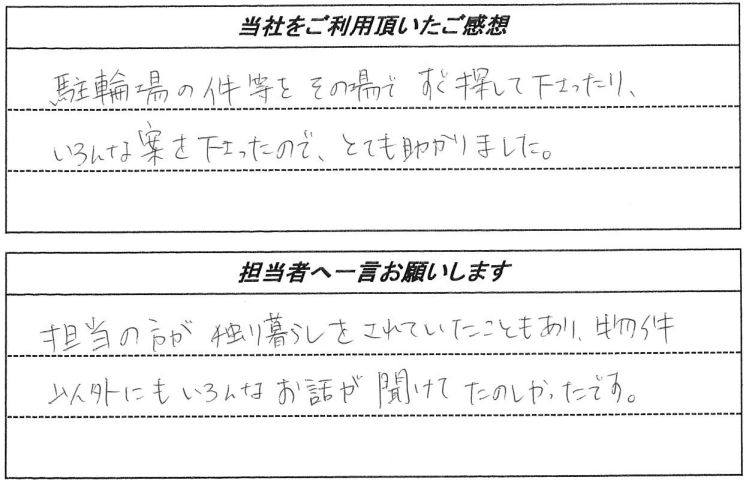 当社をご利用頂いたご感想
駐輪場の件等をその場ですぐ探して下さったり、
いろんな案を下さったので、とても助かりました。
担当者へ一言お願いします
担当の方が独り暮らしをされていたこともあり、物件
以外にもいろんなお話が聞けてたのしかったです。